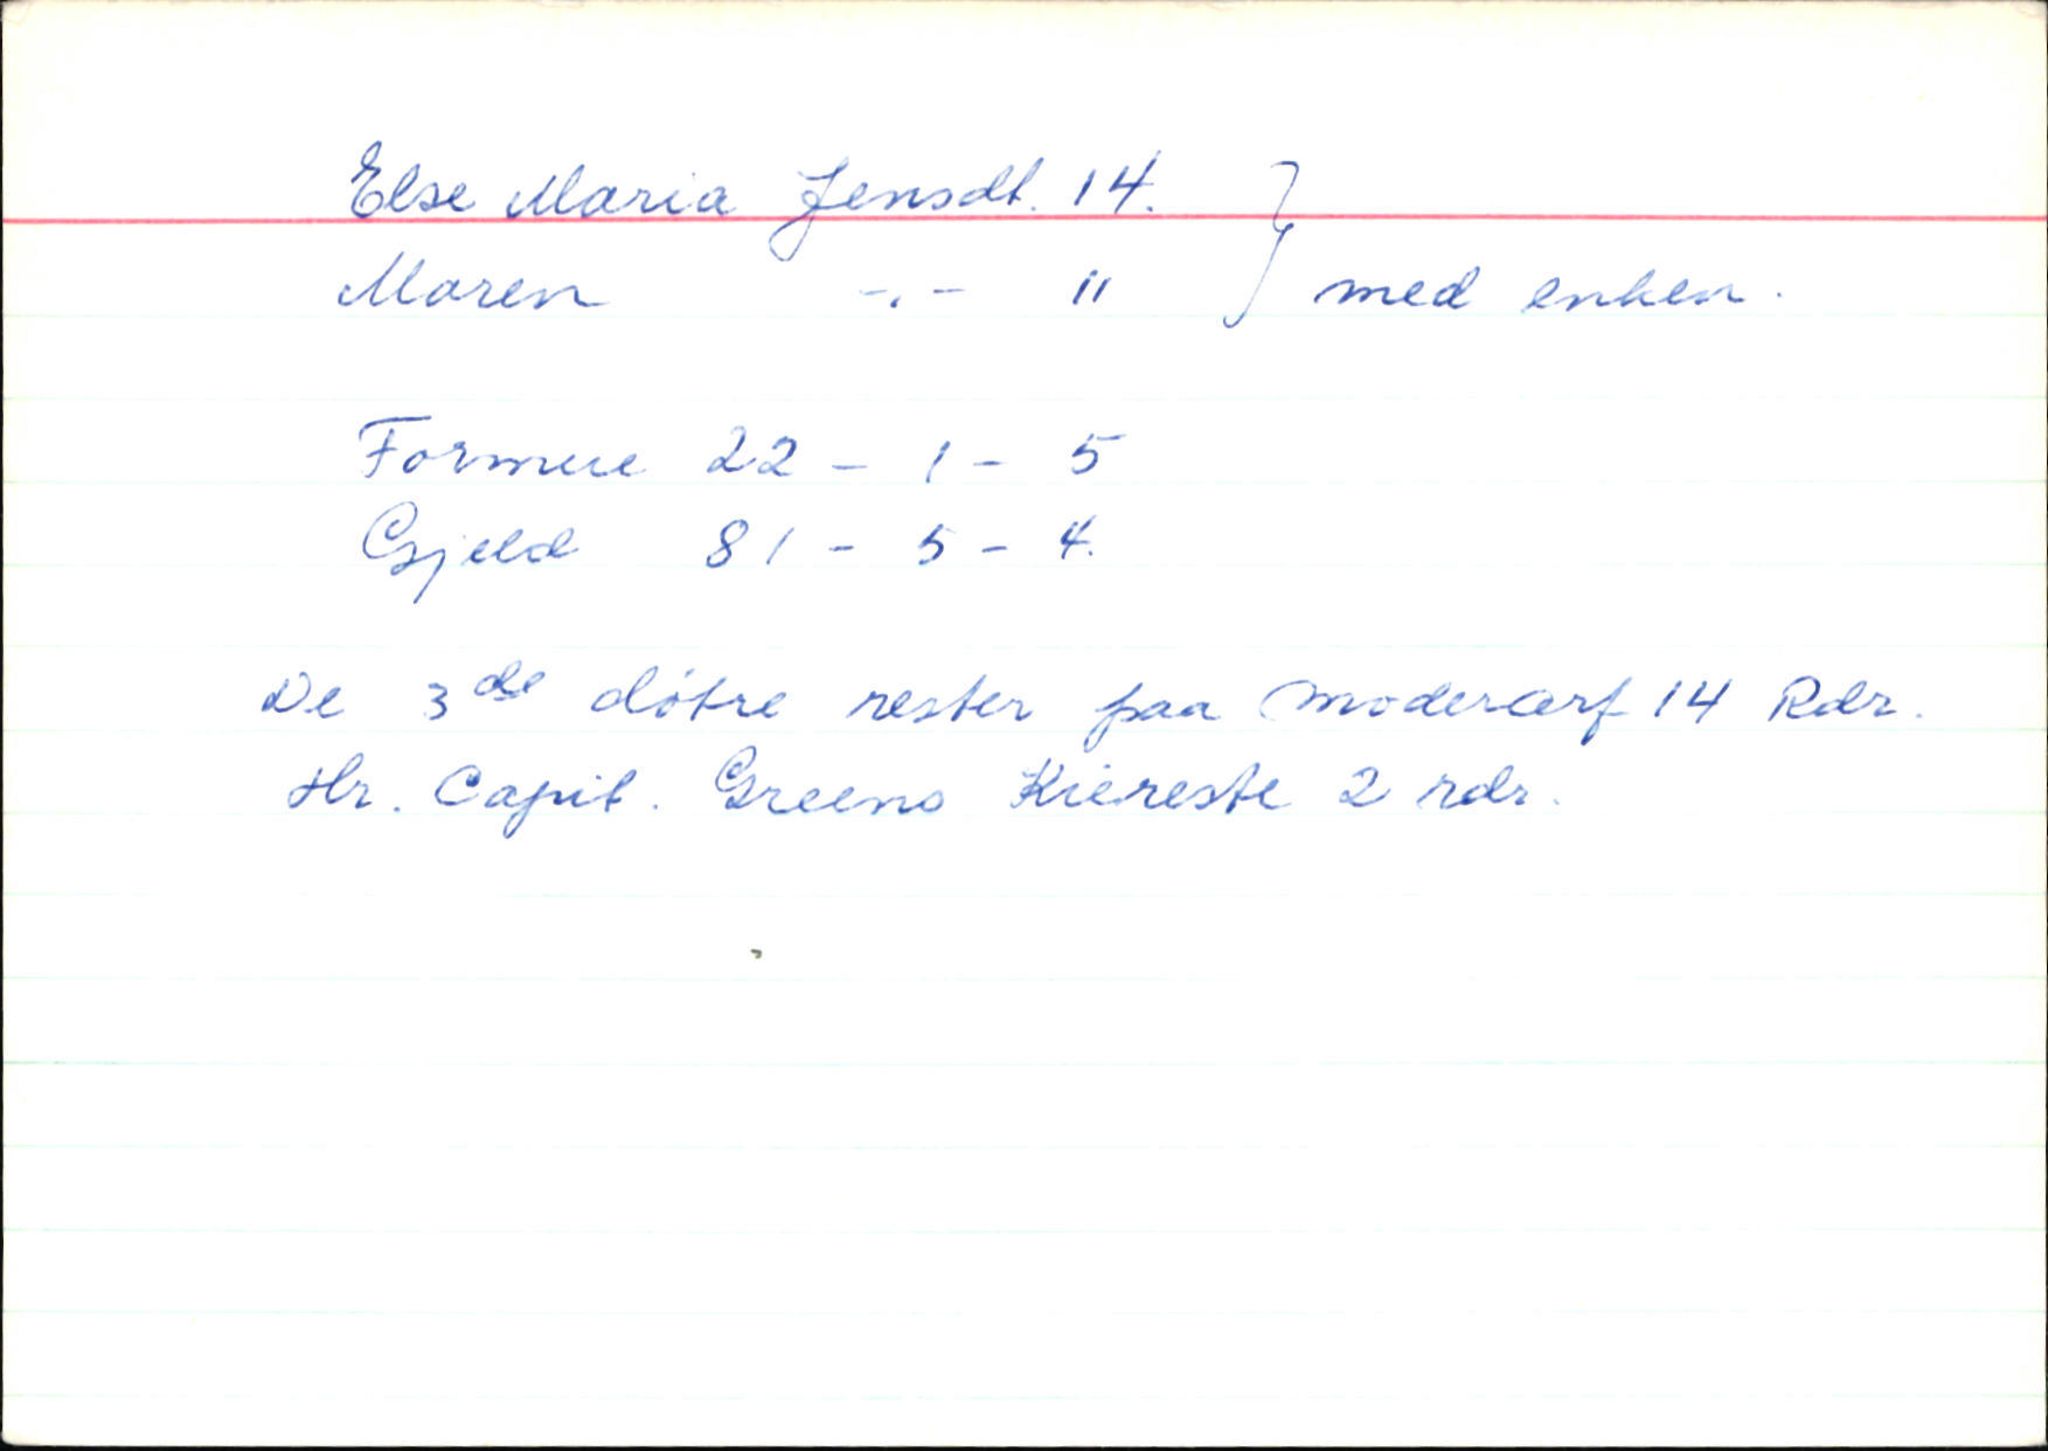 Else Maria Jensdt. 14.
Maren -.- 11 } med enken.
Formue 22 - 1 - 5
Gjeld 81 - 5 - 4.
De 3de døtre rester paa møderarf 14 Rdr.
Hr. Capit. Greens Kiereste 2 rdr.